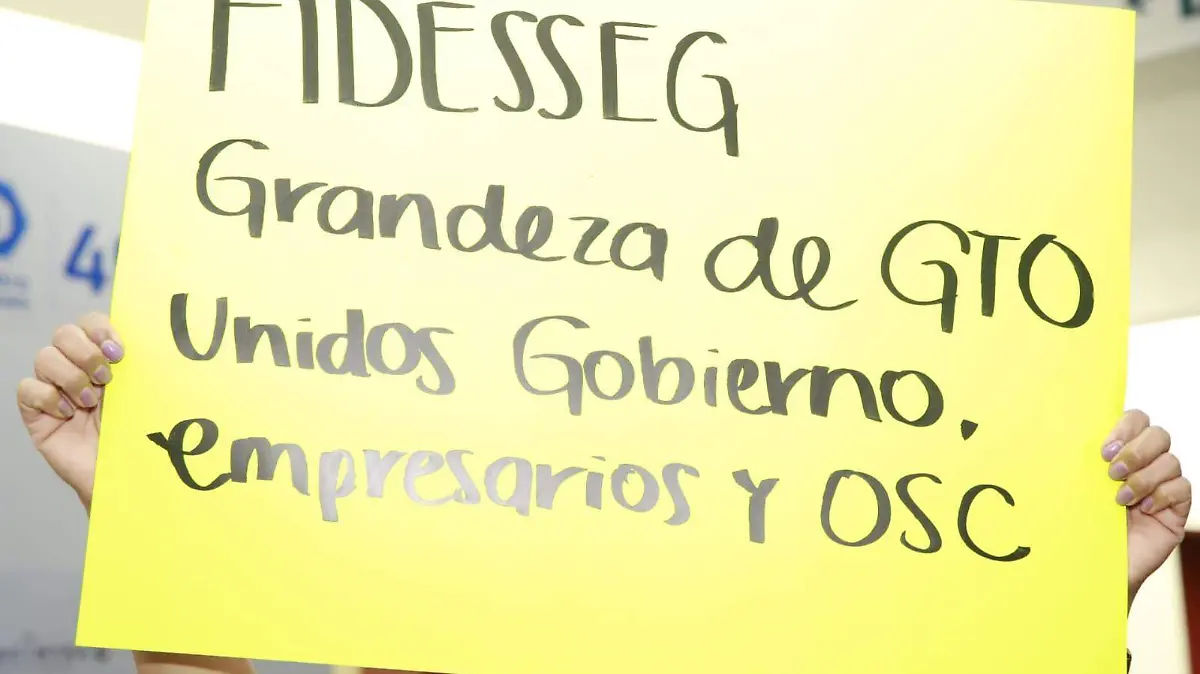 FIDESSEG
Grandeza de GTO
Unidos Gobierno,
empresarios y OSC